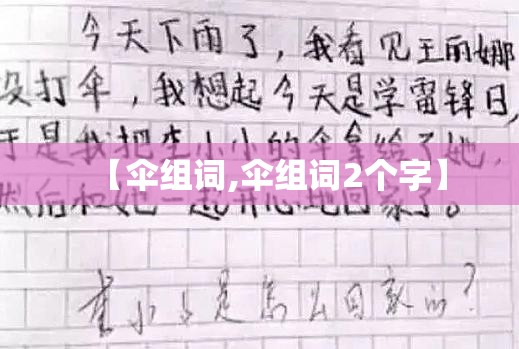 今天下雨了，我看见王丽娜
没打伞，我想起今天是学雷锋日，
于是我把李小小的伞拿给了她，
【伞组词,伞组词2个字】
然后和她一起开心地回家了。
李小小是怎么回家的？